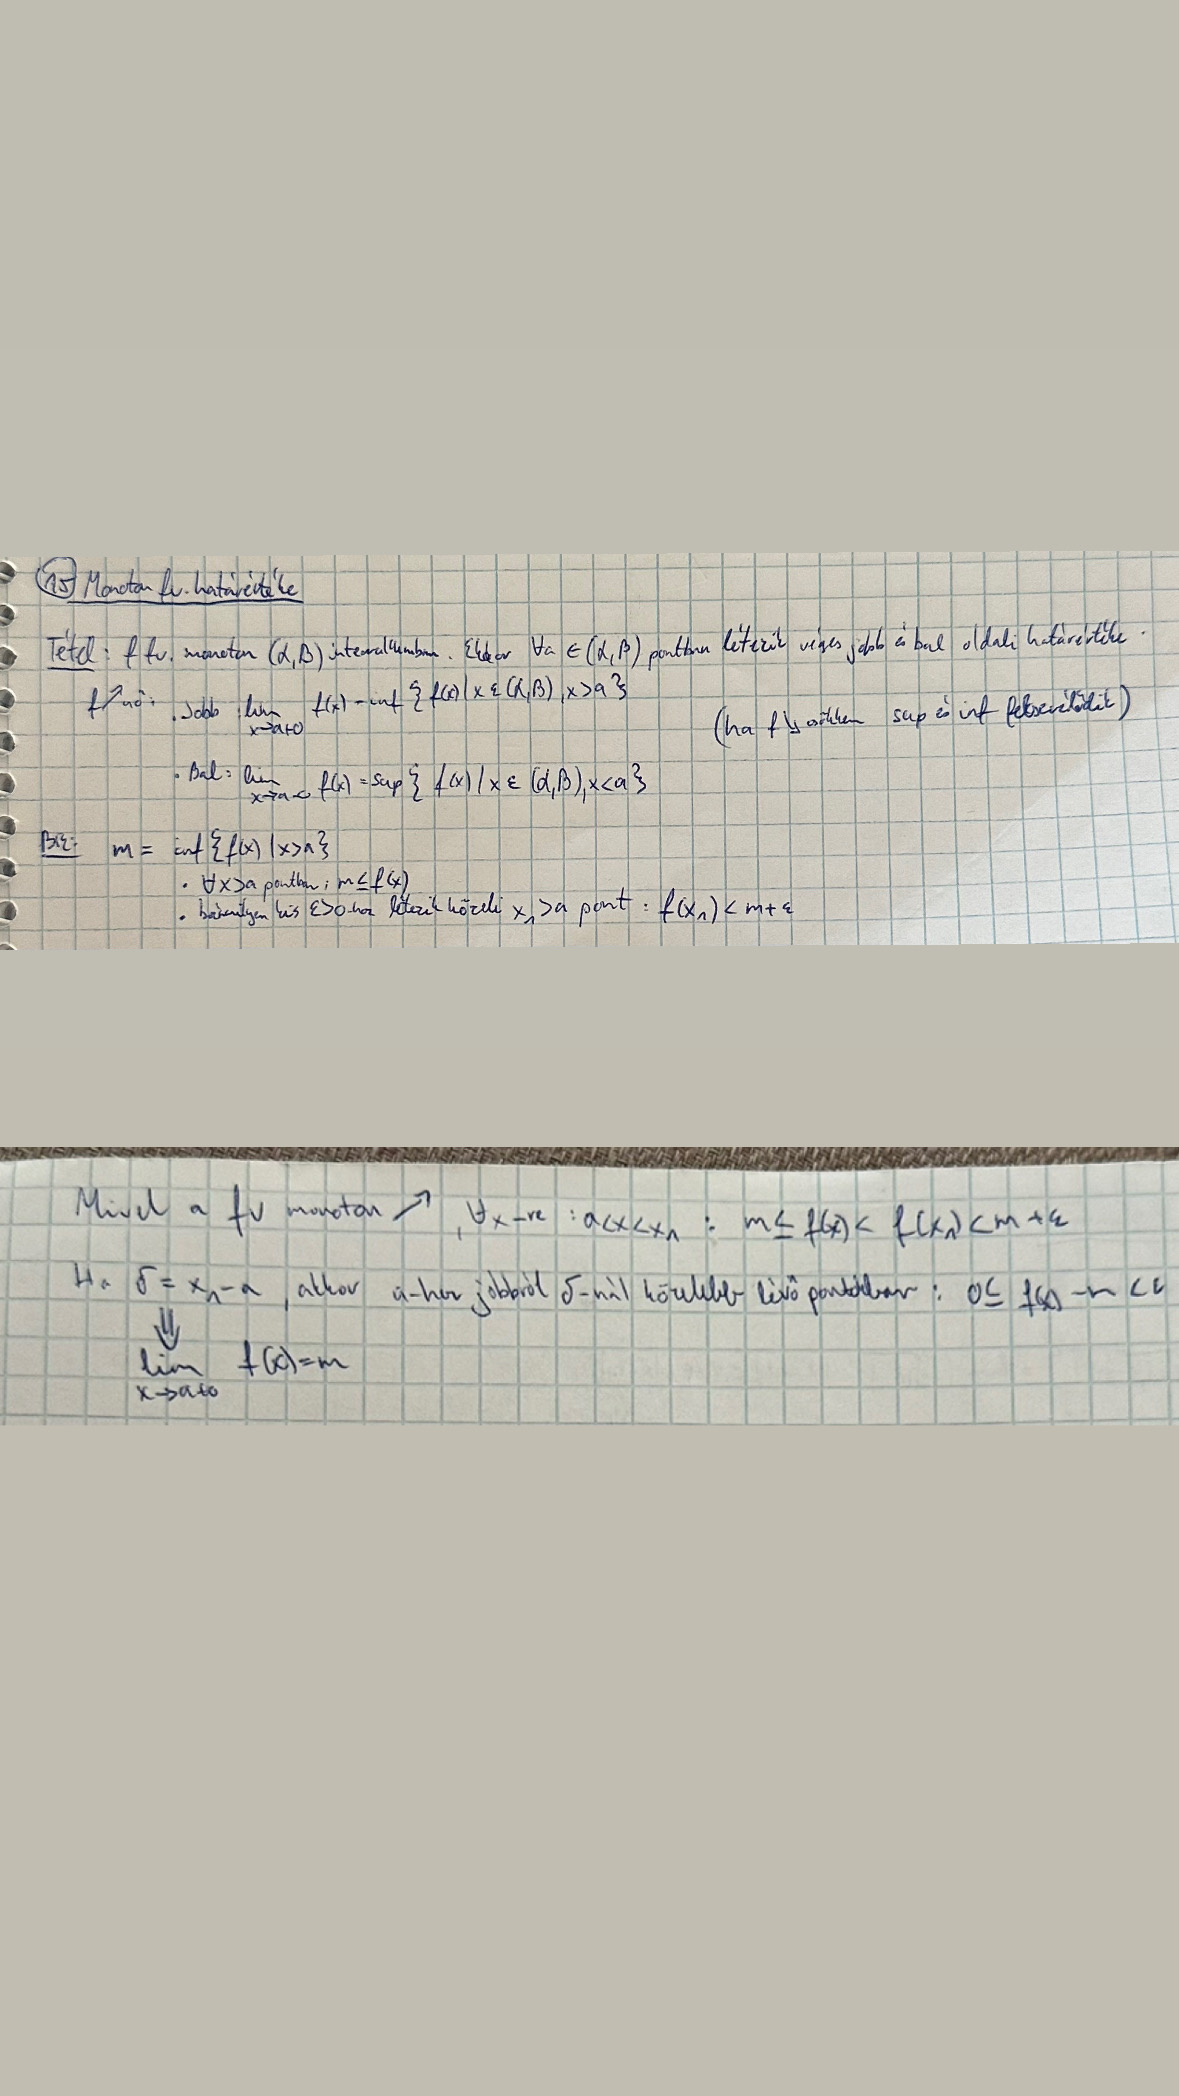 15 Monoton fv. határértéke
Tétel: f fv. monoton (α,β) intervallumban. Ekkor ∀a ∈ (α,β) pontban létezik véges jobb és bal oldali határértéke.
f↗nő: . Jobb: lim x→a+0 f(x) = inf { f(x) | x ∈ (α,β), x>a }
(ha f ↘ csökken sup és inf felcserélődik)
. Bal: lim x→a-0 f(x) = sup { f(x) | x ∈ (α,β), x<a }
Biz: m = inf { f(x) | x>a }
• ∀x>a pontban: m ≤ f(x)
• bármilyen kis ε>0-hoz létezik közeli x₁>a pont: f(x₁) < m+ε
Mivel a fv monoton ↗, ∀x-re : a<x<x₁ : m ≤ f(x) < f(x₁) < m+ε
Ha δ = x₁-a, akkor a-hoz jobbról δ-nál közelebb lévő pontokban: 0 ≤ f(x) - m < ε
⇓
lim x→a+0 f(x) = m